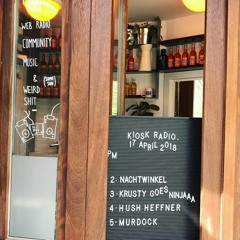 WEB RADIO
COMMUNITY
MUSIC
&
WEIRD
SHIT
KIOSK RADIO.
17 APRIL 2018
PM
2- NACHTWINKEL
3- KRUSTY GOES NINJAAA
4- HUSH HEFFNER
5- MURDOCK